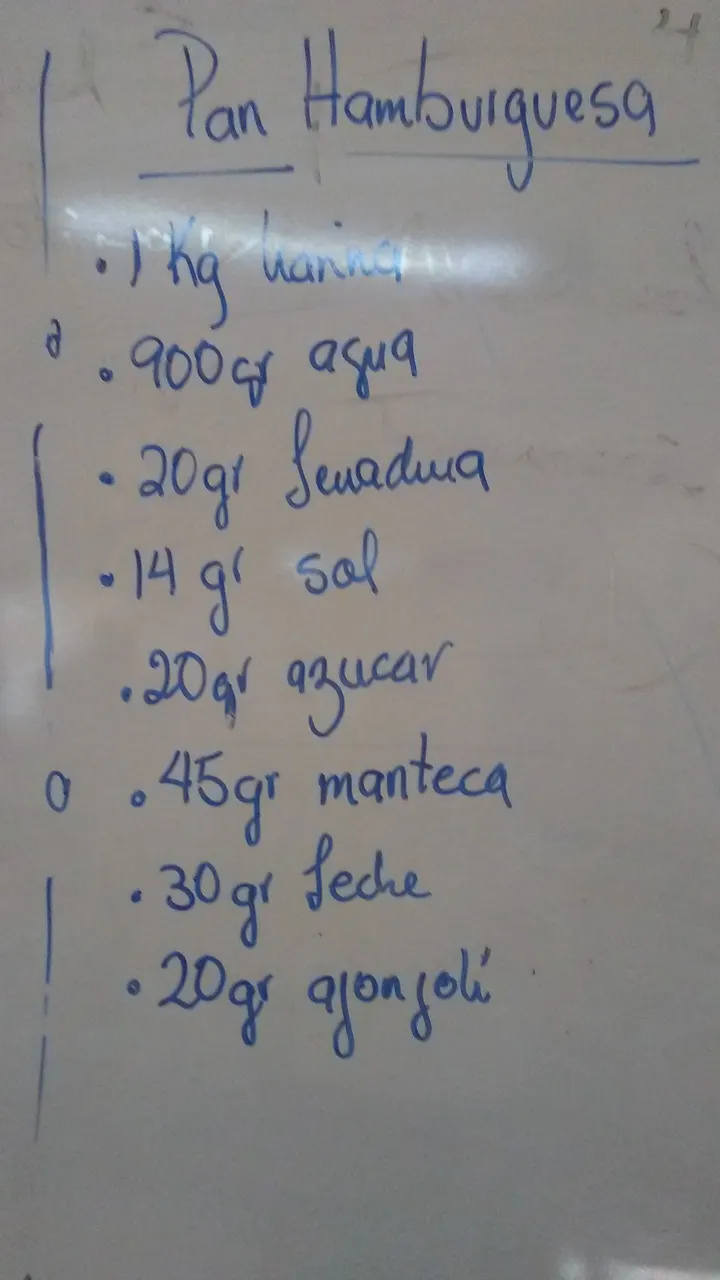 Pan Hamburguesa
. 1 Kg harina
. 900gr agua
. 20gr levadura
. 14 gr sal
. 20gr azucar
. 45gr manteca
. 30gr leche
. 20gr ajonjolí